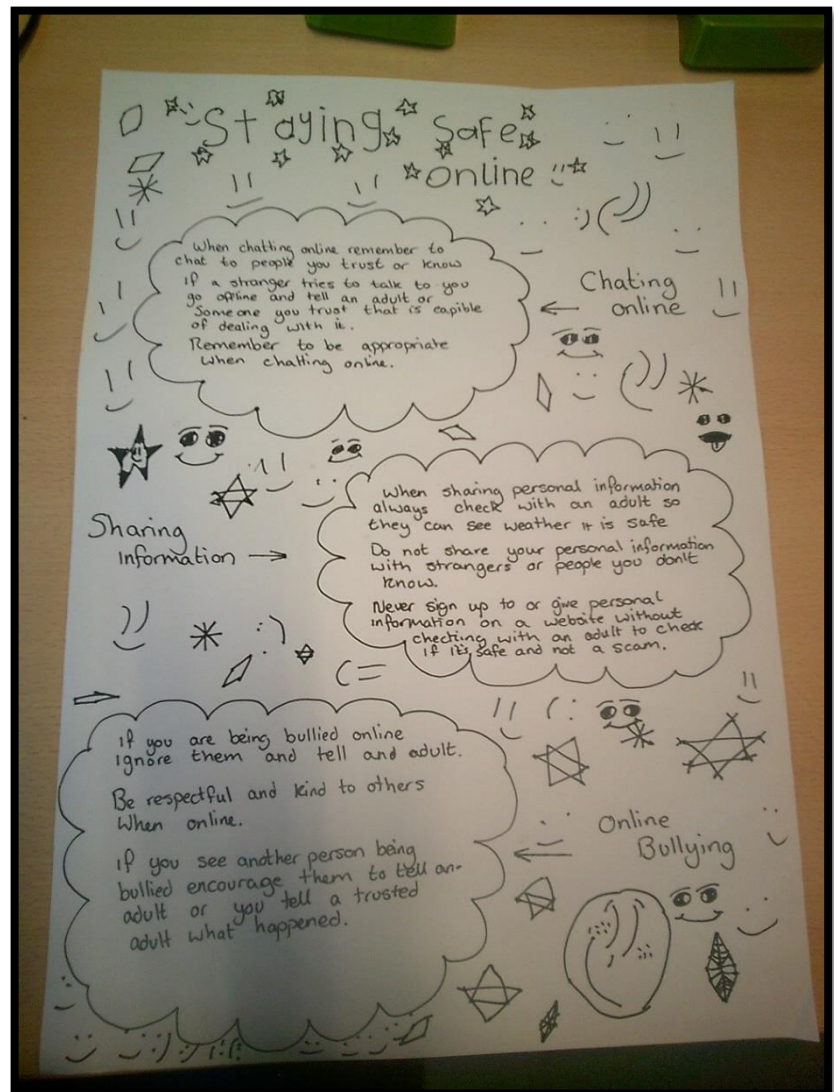 Staying Safe
online
When chatting online remember to
chat to people you trust or know
If a stranger tries to talk to you
go offline and tell an adult or
Someone you trust that is capible
of dealing with it.
Remember to be appropriate
when chatting online.
Chating
online
When sharing personal information
always check with an adult so
they can see weather it is safe
Do not share your personal information
with strangers or people you don't
know.
Never sign up to or give personal
information on a website without
checking with an adult to check
if it's safe and not a scam.
Sharing
Information
If you are being bullied online
ignore them and tell and adult.
Be respectful and kind to others
When online.
If you see another person being
bullied encourage them to tell an
adult or you tell a trusted
adult what happened.
Online
Bullying